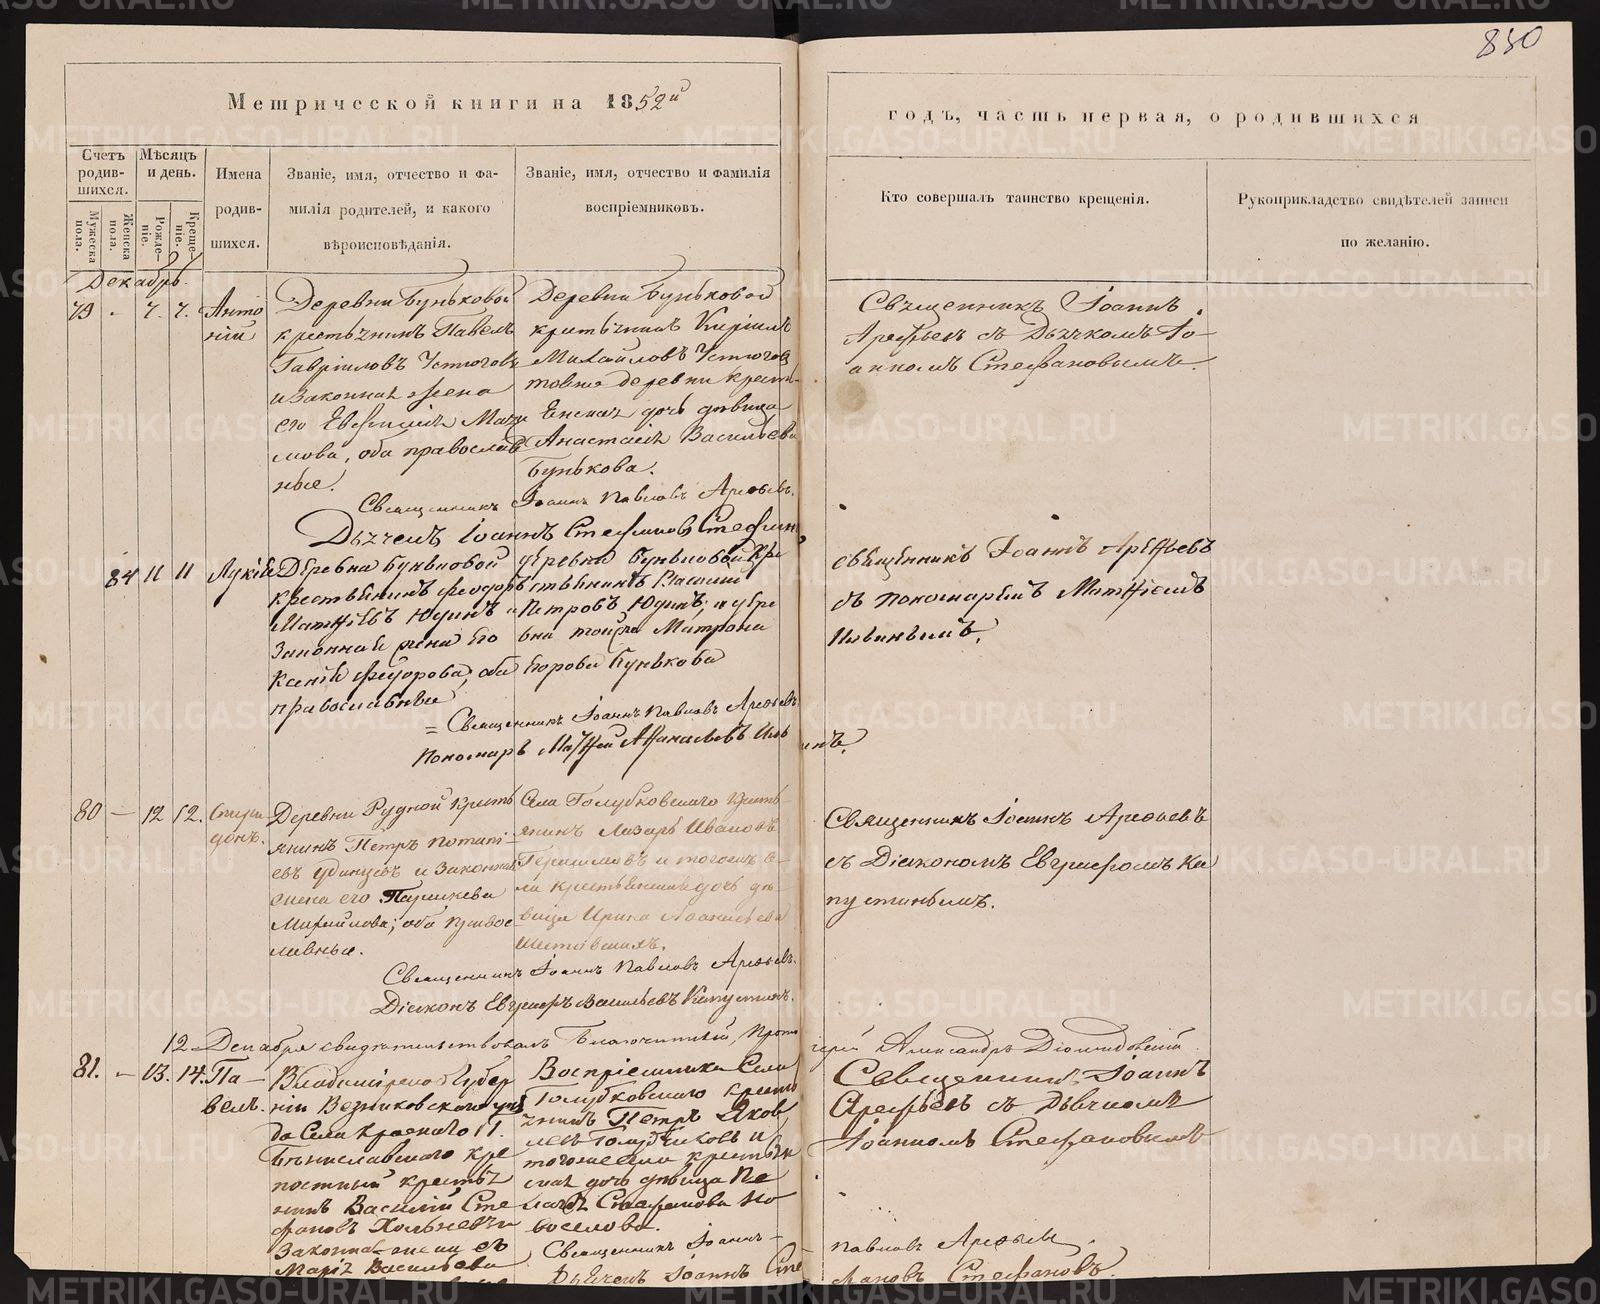 850
Метрической книги на 1852й
годъ, часть первая, о родившихся
Счетъ родив-шихся.
Мѣсяцъ и день.
Мужеска пола.
Женска пола.
Рожде-ніе.
Креще-ніе.
Имена родив-шихся.
Званіе, имя, отчество и фа-
милія родителей, и какого
вѣроисповѣданія.
Званіе, имя, отчество и фамилія
воспріемниковъ.
Кто совершалъ таинство крещенія.
Рукоприкладство свидѣтелей записи
по желанію.
Декабрь.
79 - 7. 7. Анто
ній
Деревни Буньковой
крестьянинъ Павелъ
Гавріиловъ Устюговъ
и законная жена
его Евѳимія Макси
мова, оба православ
ные.
Деревни Буньковой
крестьянинъ Киріилъ
Михайловъ Устюговъ
тояже деревни кресть
янская дочь дѣвица
Анастасія Васильева
Бунькова.
Священникъ Іоаннъ
Арефьевъ съ Дьячкомъ Іо
анномъ Стефановымъ.
Священникъ Іоаннъ Павловъ Арефьевъ.
Дьячекъ Іоаннъ Стефановъ Стефановъ
84 11 11 Лукія
Деревни Буньковой
крестьянинъ Феодоръ
Матѳіевъ Юдинъ и
Законная жена Его
Ксенія Федорова, оба
православные
деревни Буньковой кре
стьянинъ Василий
Петровъ Юдинъ; и дере
вни той же Матрона
Егорова Бунькова
священникъ Іоаннъ Арефьевъ
съ пономаремъ Матѳіемъ
Ильинымъ.
= Священникъ Іоаннъ Павловъ Арефьевъ
Пономарь Матѳей Аѳанасьевъ Иль инъ.
80 — 12 12. Спири
донъ.
Деревни Рудной Кресть
янинъ Петръ Потапі-
евъ Удинцевъ и Законная
жена его Параскева
Михайлова; оба Правос-
лавные.
Села Голубковскаго Кресть-
янинъ Лазарь Ивановъ
и тогожъ се-
ла крестьянская дочь дѣ-
вица Ирина Аѳанасьева
Священникъ Іоаннъ Арефьевъ
съ Діакономъ Евграфомъ Ка
пустинымъ.
Священникъ Іоаннъ Павловъ Арефьевъ.
Діаконъ Евграфъ Васильевъ Капустинъ.
12 Декабря свидѣтельствовалъ Благочинный, Прото
іерей Александръ
81. — 13. 14. Па-
велъ.
Владимірской Губер
ніи Вязниковскаго уѣз
да Села Краснаго П.
кре
постный крестья
нинъ Василій Сте
фановъ
Законная жена его
Марія Васильева
Воспріемники Села
Голубковскаго кресть
янинъ Петръ Яков
левъ Голубчиковъ и
тогоже села крестьян
ская дочь дѣвица Пе
лагія Стефанова Но
воселова.
Священникъ Іоаннъ
Арефьевъ съ Дьячкомъ
Іоанномъ Стефановымъ
Священникъ Іоаннъ - Павловъ Арефьевъ.
Дьячекъ Іоаннъ Сте фановъ Стефановъ.
METRIKI.GASO-URAL.RU